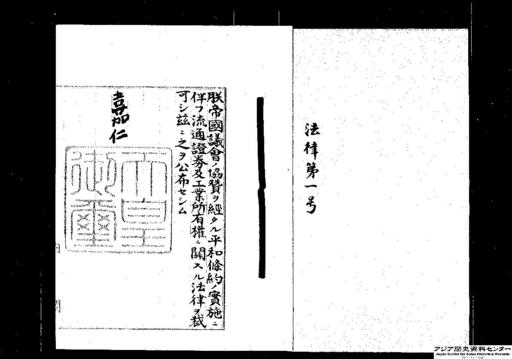 法律第一号
朕帝國議會ノ協贊ヲ經タル平和條約ノ實施ニ
伴フ流通證券及工業所有權ニ關スル法律ヲ裁
可シ茲ニ之ヲ公布セシム
嘉仁
天皇
御璽
アジア歴史資料センター
Japan Center for Asian Historical Records